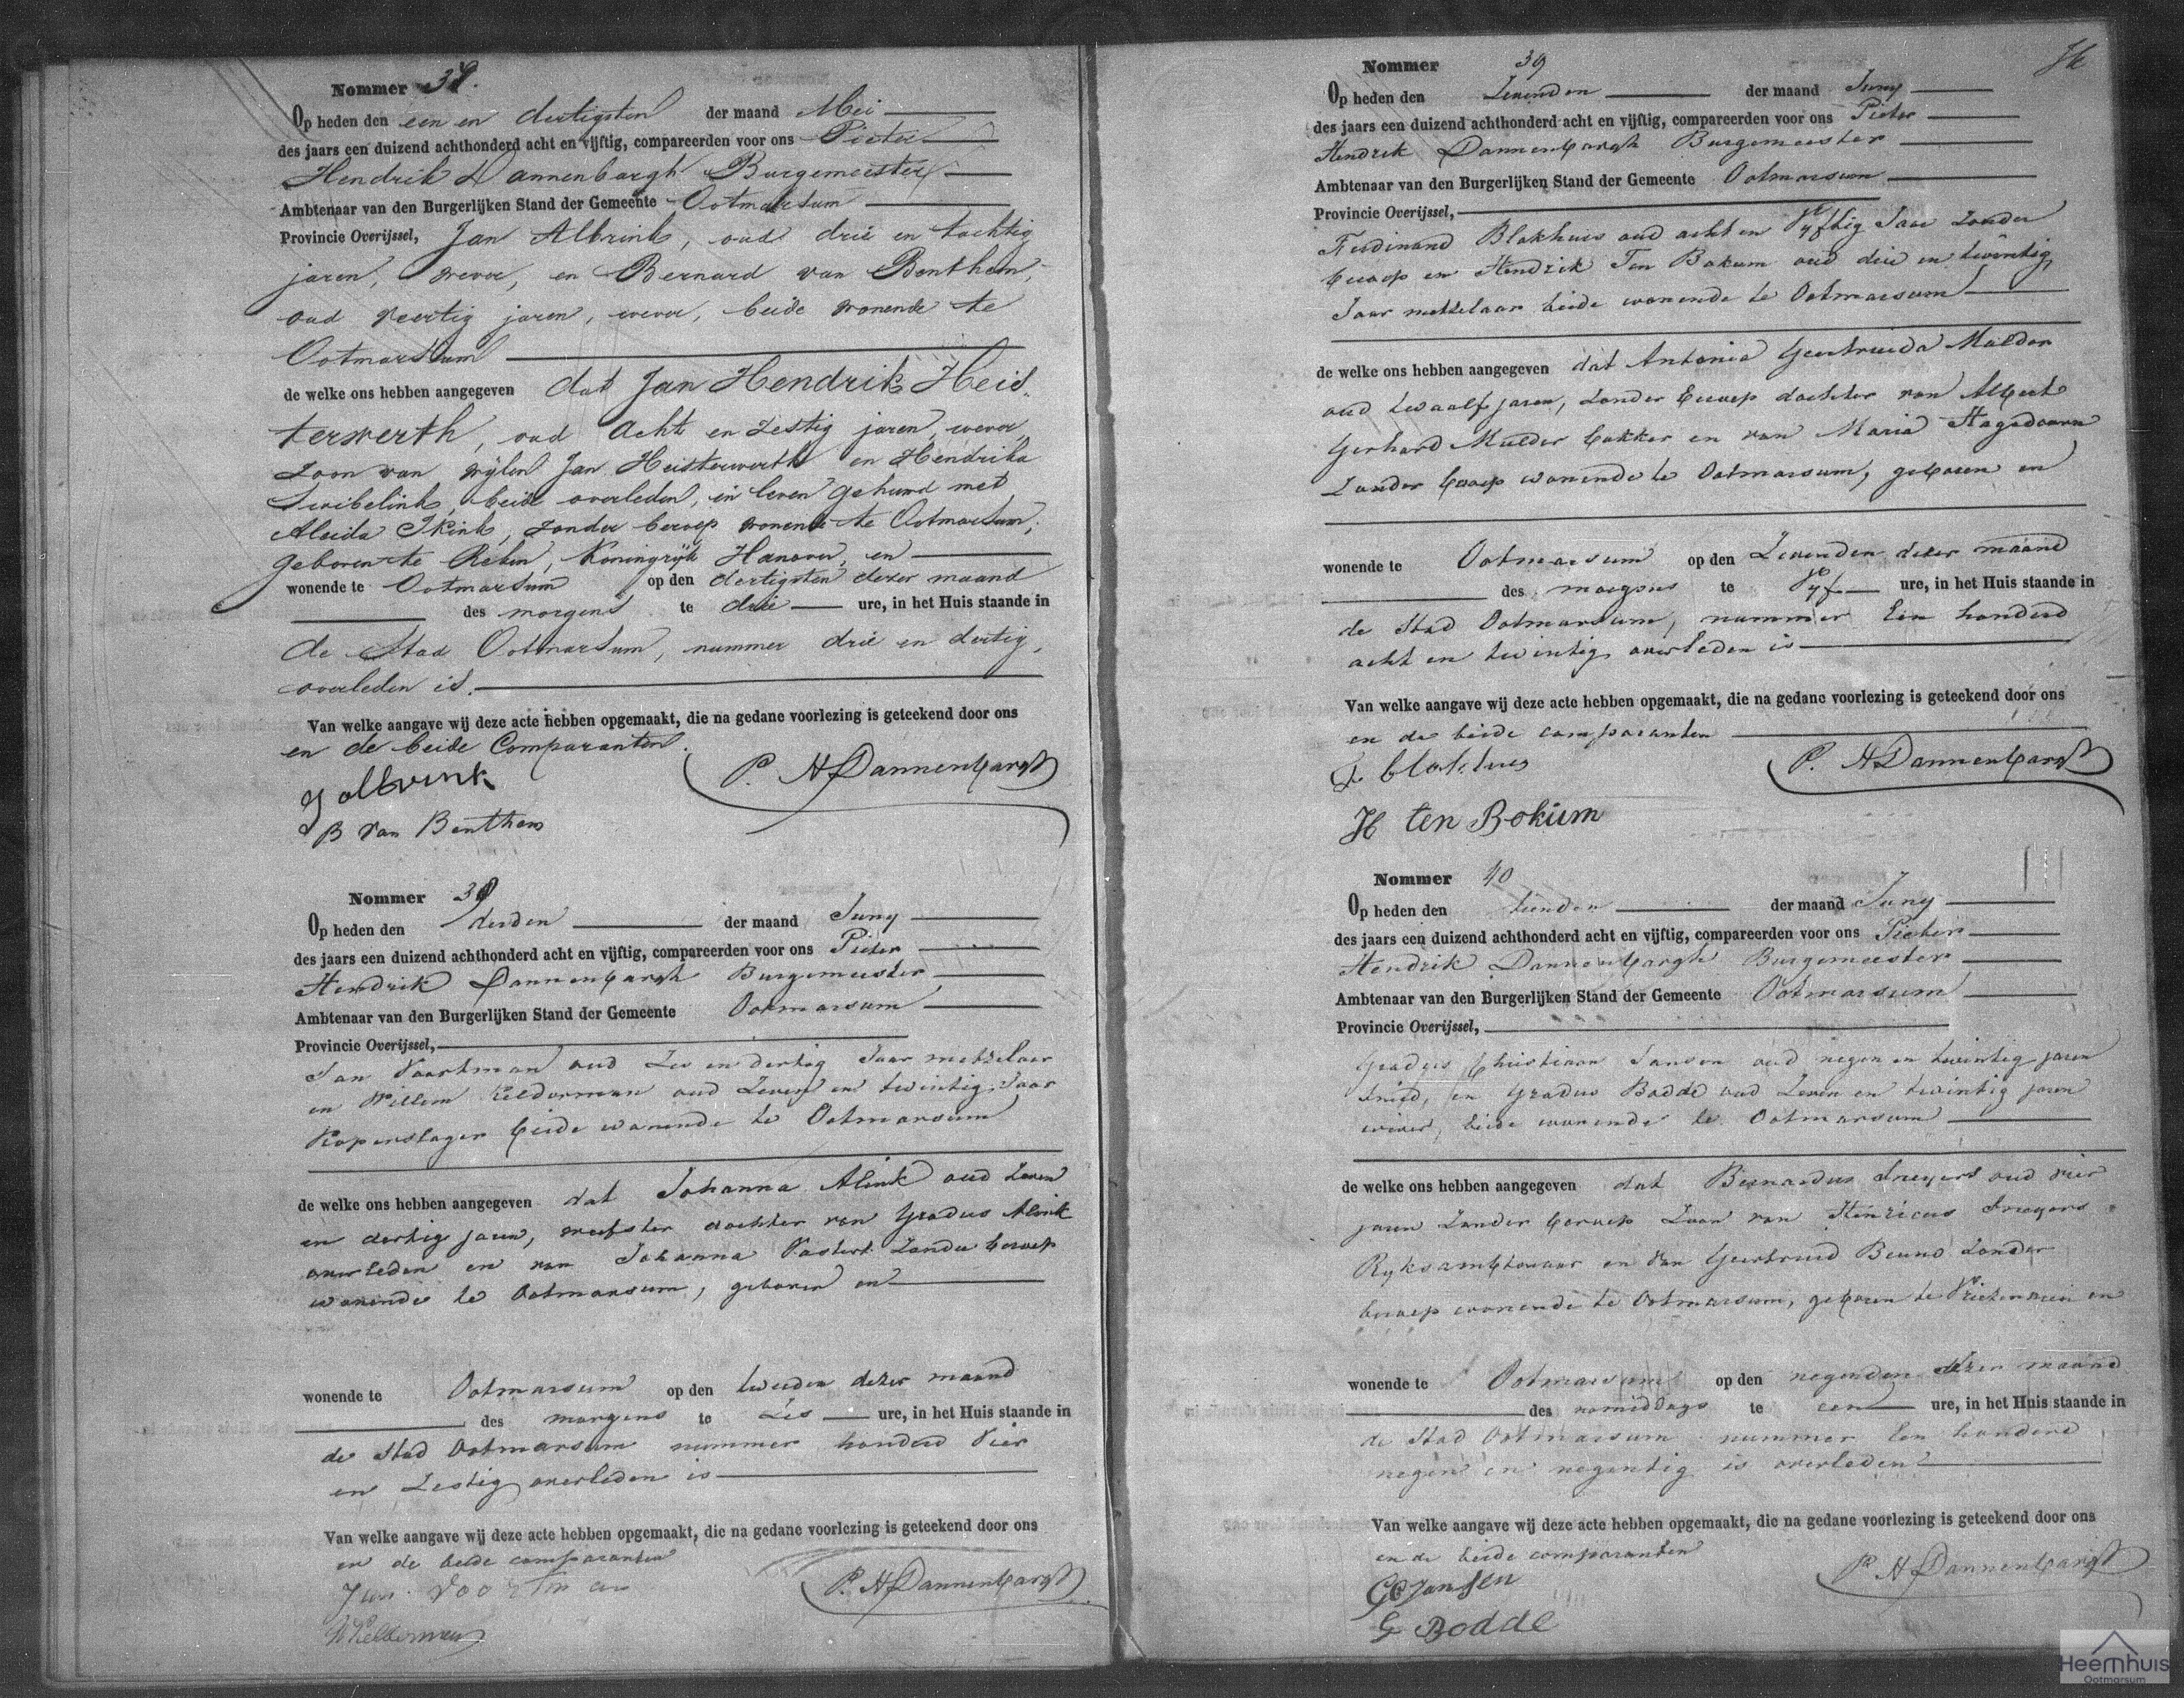 Nommer 37.
Op heden den een en dertigsten der maand Mei
des jaars een duizend achthonderd acht en vijftig, compareerden voor ons Pieter
Hendrik Dannenbargh Burgemeester
Ambtenaar van den Burgerlijken Stand der Gemeente Ootmarsum
Provincie Overijssel, Jan Albrink, oud drie en tachtig
jaren, wever, en Bernard van Benthem,
oud veertig jaren, wever, beide wonende te
Ootmarsum
de welke ons hebben aangegeven dat Jan Hendrik Heis
terwerth, oud acht en zestig jaren, wever,
zoon van wijlen Jan Heisterwerth en Hendrika
beide overleden, in leven gehuwd met
Aleida Ikink, zonder beroep wonende te Ootmarsum,
geboren te Koningrijk Hanover, en
wonende te Ootmarsum op den dertigsten dezer maand
des morgens te drie ure, in het Huis staande in
de Stad Ootmarsum, nummer drie en dertig,
overleden is.
Van welke aangave wij deze acte hebben opgemaakt, die na gedane voorlezing is geteekend door ons
en de beide Comparanten.
J albrink P. H Dannenbargh
B van Benthem
Nommer 38
Op heden den derden der maand Juny
des jaars een duizend achthonderd acht en vijftig, compareerden voor ons Pieter
Hendrik Dannenbargh Burgemeester
Ambtenaar van den Burgerlijken Stand der Gemeente Ootmarsum
Provincie Overijssel,
Jan Voortman oud Zes en dertig Jaar metselaar
en Willem Kelderman oud Zeven en twintig Jaar
Koperslager beide wonende te Ootmarsum
de welke ons hebben aangegeven dat Johanna Alink oud Zeven
en dertig jaren, weefster dochter van Gradus Alink
overleden en van Johanna Zonder beroep
wonende te Ootmarsum, geboren en
wonende te Ootmarsum op den tweeden dezer maand
des morgens te Zes ure, in het Huis staande in
de Stad Ootmarsum nummer honderd Vier
en Zestig overleden is
Van welke aangave wij deze acte hebben opgemaakt, die na gedane voorlezing is geteekend door ons
en de beide comparanten
Jan Voortman P. H Dannenbargh
W Kelderman
Nommer 39
Op heden den Zevenden der maand Juny
des jaars een duizend achthonderd acht en vijftig, compareerden voor ons Pieter
Hendrik Dannenbargh Burgemeester
Ambtenaar van den Burgerlijken Stand der Gemeente Ootmarsum
Provincie Overijssel,
Ferdinand Blokhuis oud acht en Vyftig Jaar Zonder
beroep en Hendrik Ten Bokum oud drie en twintig
Jaar metselaar beide wonende te Ootmarsum
de welke ons hebben aangegeven dat Antonia Geertruida Mulder
oud twaalf jaren, Zonder beroep dochter van Albert
Gerhard Mulder bakker en van Maria Hagedoorn
Zonder beroep wonende te Ootmarsum, geboren en
wonende te Ootmarsum op den Zevenden dezer maand
des morgens te Vyf ure, in het Huis staande in
de Stad Ootmarsum, nummer Een honderd
acht en twintig overleden is
Van welke aangave wij deze acte hebben opgemaakt, die na gedane voorlezing is geteekend door ons
en de beide comparanten
F blokhuis P. H Dannenbargh
H ten Bokum
Nommer 40
Op heden den tienden der maand Juny
des jaars een duizend achthonderd acht en vijftig, compareerden voor ons Pieter
Hendrik Dannenbargh Burgemeester
Ambtenaar van den Burgerlijken Stand der Gemeente Ootmarsum
Provincie Overijssel,
Gradus Christiaan Jansen oud negen en twintig jaren
Smid, en Gradus Bodde oud Zeven en twintig jaren
wever, beide wonende te Ootmarsum
de welke ons hebben aangegeven dat Bernardus oud vier
jaren Zonder beroep Zoon van Henricus
Ryksambtenaar en van Geertruid Zonder
beroep wonende te Ootmarsum, geboren te Vriezenveen en
wonende te Ootmarsum op den negenden dezer maand
des namiddags te een ure, in het Huis staande in
de Stad Ootmarsum nummer Een honderd
negen en negentig is overleden
Van welke aangave wij deze acte hebben opgemaakt, die na gedane voorlezing is geteekend door ons
en de beide comparanten
GC Jansen P. H Dannenbargh
G Bodde
Heemhuis
Ootmarsum